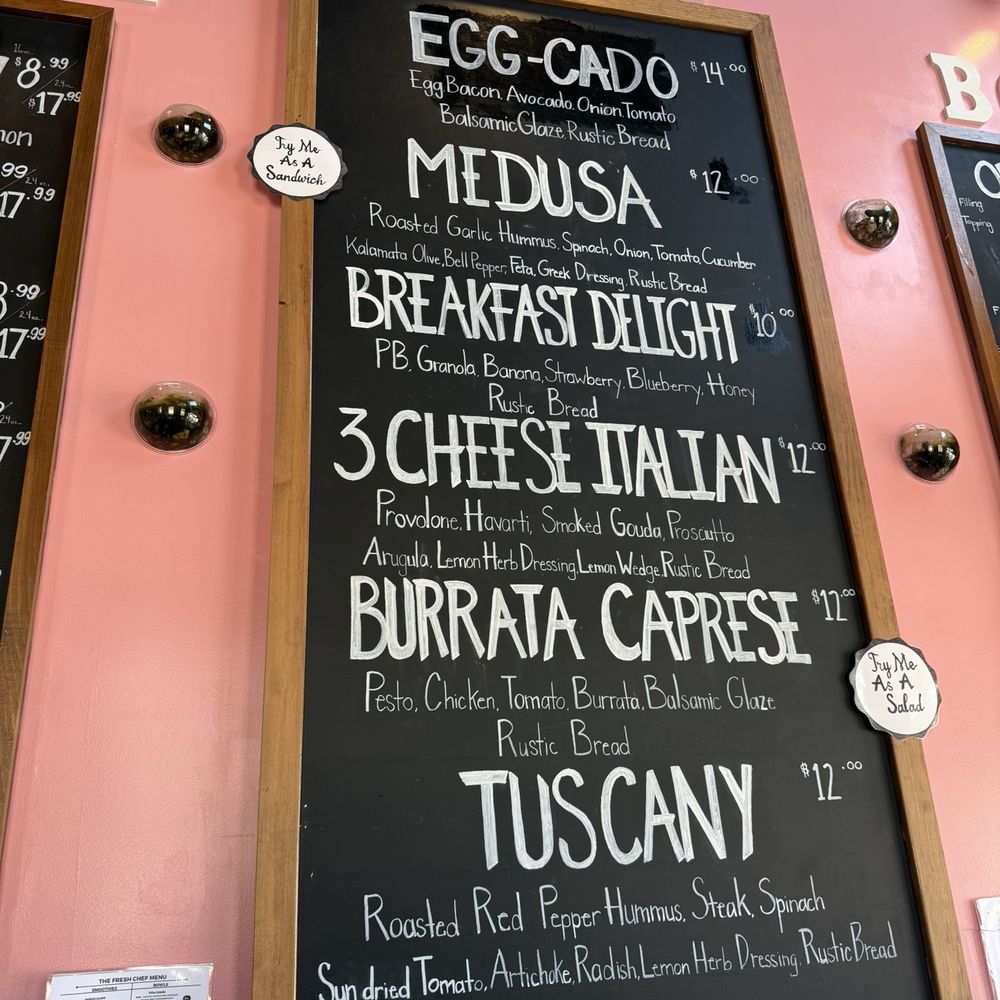 16oz.
$8.99
24oz.
$17.99
.99
24oz.
17.99
.99
24oz.
17.99
24oz.
.99
EGG-CADO $14.00
Egg, Bacon, Avocado, Onion, Tomato
Balsamic Glaze, Rustic Bread
Try Me
As A
Sandwich
MEDUSA $12.00
Roasted Garlic Hummus, Spinach, Onion, Tomato, Cucumber
Kalamata Olive, Bell Pepper, Feta, Greek Dressing, Rustic Bread
BREAKFAST DELIGHT $10.00
PB, Granola, Banana, Strawberry, Blueberry, Honey
Rustic Bread
3 CHEESE ITALIAN $12.00
Provolone, Havarti, Smoked Gouda, Prosciutto
Arugula, Lemon Herb Dressing, Lemon Wedge, Rustic Bread
BURRATA CAPRESE $12.00
Pesto, Chicken, Tomato, Burrata, Balsamic Glaze
Rustic Bread
Try Me
As A
Salad
TUSCANY $12.00
Roasted Red Pepper Hummus, Steak, Spinach
Sun dried Tomato, Artichoke, Radish, Lemon Herb Dressing, Rustic Bread
B
Filling
Topping
THE FRESH CHEF MENU
SMOOTHIES BOWLS